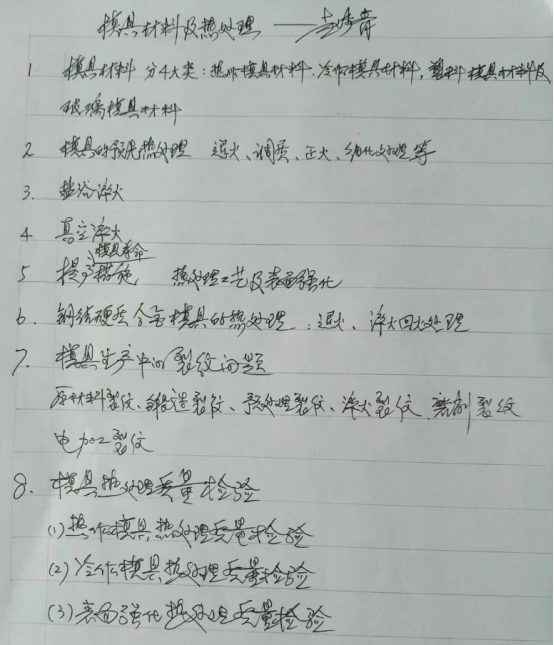 模具材料及热处理 ——
1 模具材料 分4大类：热作模具材料、冷作模具材料，塑料模具材料及
玻璃模具材料
2 模具的预先热处理 退火、调质、正火、细化处理等
3. 盐浴淬火
4 真空淬火
模具寿命
5 提高措施 热处理工艺及表面强化
6. 钢结硬质合金模具的热处理：退火、淬火回火处理
7. 模具生产中的裂纹问题
原材料裂纹、锻造裂纹、热处理裂纹、淬火裂纹 磨削裂纹
电加工裂纹
8. 模具热处理质量检验
(1) 热作模具热处理质量检验
(2) 冷作模具热处理质量检验
(3) 表面强化热处理质量检验